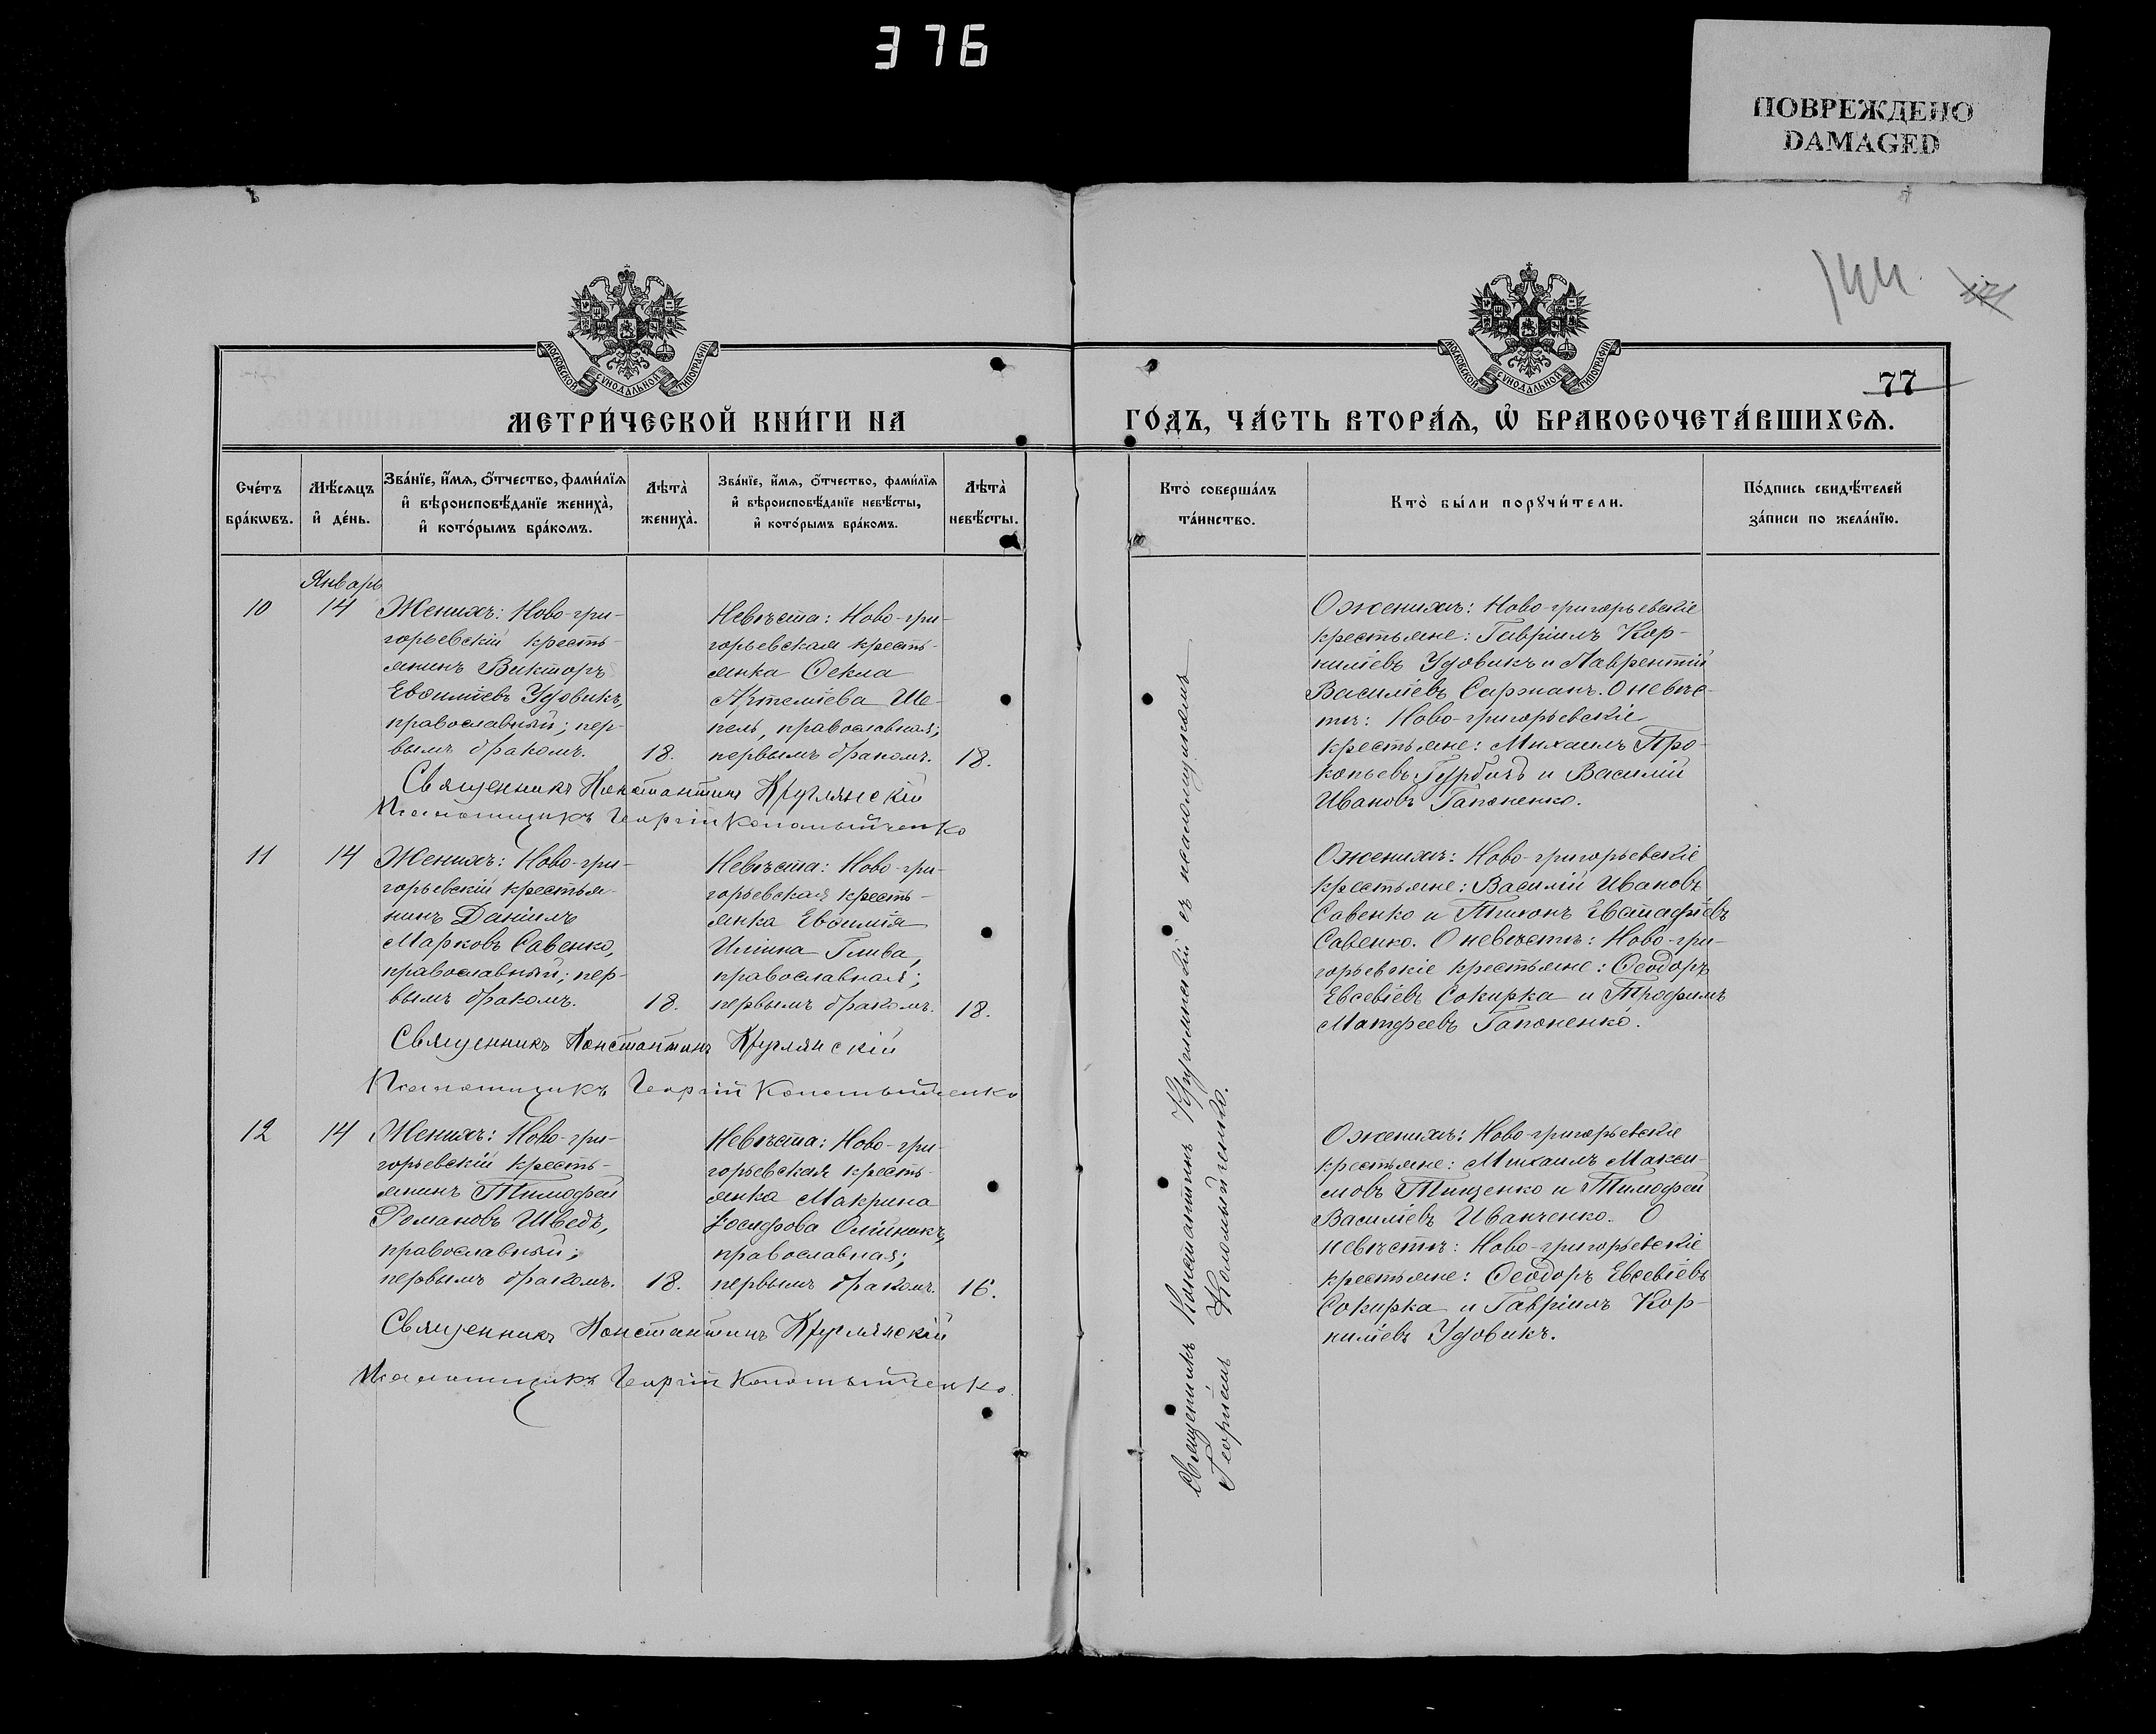 376
ПОВРЕЖДЕНО
DAMAGED
144
77
МОСКОВСКОЙ СѴНОДАЛЬНОЙ ТИПОГРАФІИ
МОСКОВСКОЙ СѴНОДАЛЬНОЙ ТИПОГРАФІИ
МЕТРИ́ЧЕСКОЙ КНИ́ГИ НА
ГО́ДЪ, ЧА́СТЬ ВТОРА́Ѧ, Ѡ҆ БРАКОСОЧЕТА́ВШИХСѦ.
Сче́тъ
бра́кѡвъ.
Мѣ́сѧцъ
и҆ де́нь.
Зва́нїе, и҆́мѧ, ѻ҆́тчество, фами́лїѧ
и҆ вѣроисповѣ́данїе жениха̀,
и҆ кото́рымъ бра́комъ.
Лѣта̀
жениха̀.
Зва́нїе, и҆́мѧ, ѻ҆́тчество, фами́лїѧ
и҆ вѣроисповѣ́данїе невѣ́сты,
и҆ кото́рымъ бра́комъ.
Лѣта̀
невѣ́сты.
Кто̀ соверша́лъ
та́инство.
Кто̀ бы́ли порꙋчи́тели.
По́дпись свидѣ́телей
за́писи по жела́нїю.
Январь
10
14
Женихъ: Ново-гри-
горьевскій кресть-
янинъ Викторъ
Евѳиміевъ Удовикъ,
православный; пер-
вымъ бракомъ.
18.
Невѣста: Ново-гри-
горьевская кресть-
янка Ѳекла
Артеміева Ше-
пель, православная;
первымъ бракомъ.
18.
О женихѣ: Ново-григорьевскіе
крестьяне: Гавріилъ Кор-
ниліевъ Удовикъ и Лаврентій
Василіевъ Саржанъ. О невѣс-
тѣ: Ново-григорьевскіе
крестьяне: Михаилъ Про-
копьевъ Гурбичъ и Василій
Ивановъ Гапоненко.
Священникъ Константинъ Круглянскій
Псаломщикъ Георгій Коломыйченко
11
14
Женихъ: Ново-гри-
горьевскій крестья-
нинъ Даніилъ
Марковъ Савенко,
православный; пер-
вымъ бракомъ.
18.
Невѣста: Ново-гри-
горьевская кресть-
янка Евѳимія
Иліина Глива,
православная;
первымъ бракомъ.
18.
О женихѣ: Ново-григорьевскіе
крестьяне: Василій Ивановъ
Савенко и Тихонъ Евстафіевъ
Савенко. О невѣстѣ: Ново-гри-
горьевскіе крестьяне: Ѳеодоръ
Евсевіевъ Сокирка и Трофимъ
Матфеевъ Гапоненко.
Священникъ Константинъ Круглянскій
Псаломщикъ Георгій Коломыйченко
12
14
Женихъ: Ново-гри-
горьевскій кресть-
янинъ Тимофей
Романовъ Шведъ,
православный;
первымъ бракомъ.
18.
Невѣста: Ново-гри-
горьевская кресть-
янка Макрина
Іосифова Олійникъ,
православная;
первымъ бракомъ.
16.
О женихѣ: Ново-григорьевскіе
крестьяне: Михаилъ Макси-
мовъ Тищенко и Тимофей
Василіевъ Иванченко. О
невѣстѣ: Ново-григорьевскіе
крестьяне: Ѳеодоръ Евсевіевъ
Сокирка и Гавріилъ Кор-
ниліевъ Удовикъ.
Священникъ Константинъ Круглянскій
Псаломщикъ Георгій Коломыйченко.
Священникъ Константинъ Круглянскій съ псаломщикомъ
Георгіемъ Коломыйченко.